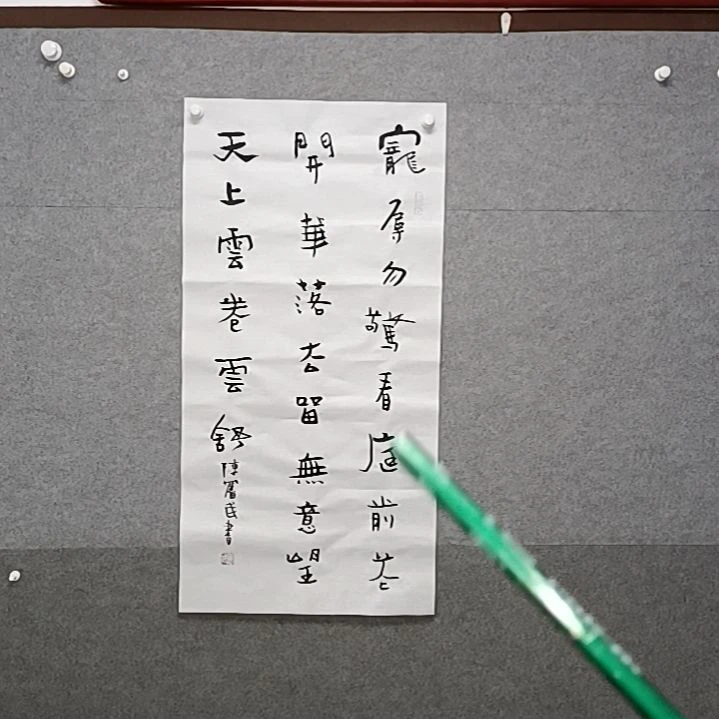 寵辱勿驚看庭前花
開華落去留無意望
天上雲卷雲舒
陳富民書